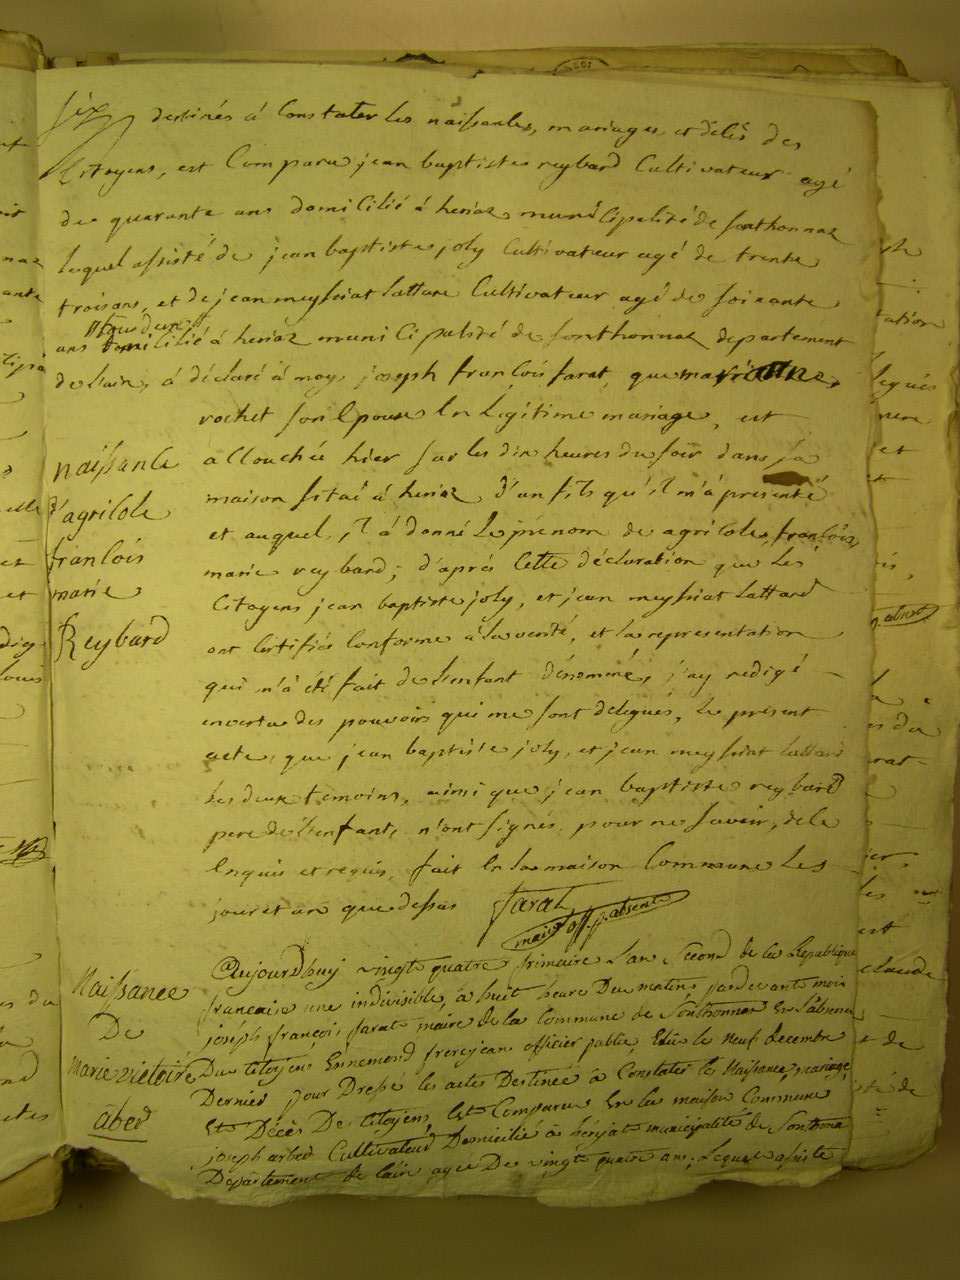 six destinés à Constater les naissances, mariages, et décès des
Citoyens, est Comparu jean baptiste reybard Cultivateur agé
de quarante ans domicilié à heriaz municipalité de sonthonnaz
lequel assisté de jean baptiste joly Cultivateur agé de trente
troisans, et de jean meyssiat lattard Cultivateur agé de soixante
tous deux
ans domicilié à heriaz municipalité de sonthonnaz departement
de l'ain, à déclaré à moy joseph françois farat, que marianne
rochet son Epouse En Legitime mariage, est
naissance
accouchée hier sur les dix heures du soir dans sa
d'agricole
maison sitaé à heriaz d'un fils qu'il m'a presenté
françois
et auquel il à donné Le prénom de agricole, françois
marie
marie reybard; d'après Cette déclaration que Les
Reybard
Citoyens jean baptiste joly, et jean meyssiat Lattard
ont Certifiés Conforme à la verité, et la representation
qui m'à été fait de L'enfant dénommé, j'ay redigé
envertu des pouvoirs qui me sont delegués, Le présent
acte, que jean baptiste joly, et jean meyssiat Lattard
Les deux temoins, ainsi que jean baptiste reybard
pere de l'enfant, n'ont signés pour ne savoir, de ce
Enquis et requis, fait En la maison Commune Les
jour et an que dessus farat
maire off. p. absent
Naissance
De
marie victoire
abed
Aujourd'huy vingt quatre frimaire L'an Second de la Republique
francaise une indivisible, à huit heure Du matin pardevant moi
joseph françois farat maire de la Commune de Sonthonnaz En L'absence
Du Citoyen Ennemond frerejean officier public, Elu le Neuf decembre
Dernier pour Dressé les actes Destinée à Constater les Naissance, mariage,
Et Décès Des Citoyens Est Comparu En la maison Commune
joseph arbed Cultivateur Domicilié à hériat municipalité de Sonthona
Département de L'ain agée De vingt quatre ans, Lequel assisté